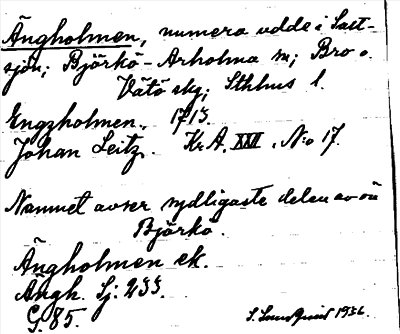 Ängholmen, numera udde i Salt-
sjön; Björkö-Arholma sn; Bro o.
Vätö skg; Sthlms l.
Engzholmen. 1713.
Johan Leitz. Kr.A. XXVI. N:o 17.
Namnet avser sydligaste delen av ön
Björkö.
Ängholmen ek.
Ängh. Sj: 233.
G. 85.
S. Lundquist 1936.